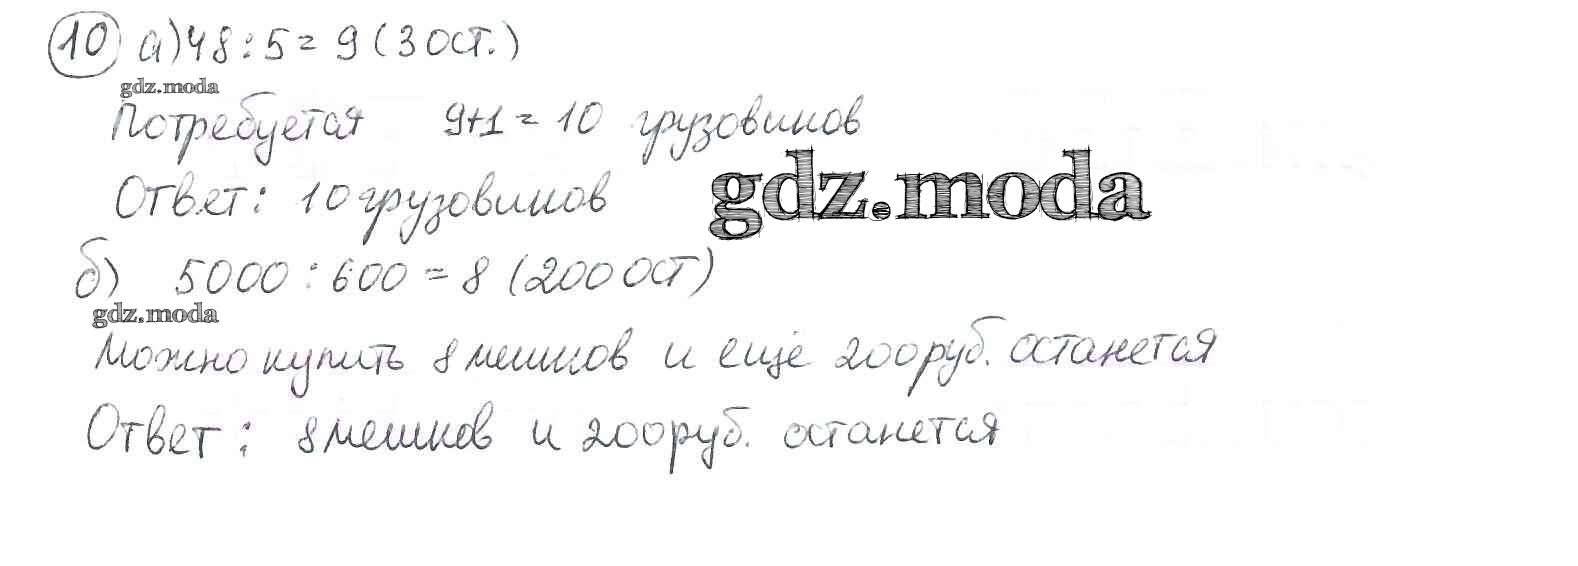 10 а) 48 : 5 = 9 (3 ост.)
gdz.moda
Потребуется 9+1 = 10 грузовиков
gdz.moda
Ответ: 10 грузовиков
б) 5000 : 600 = 8 (200 ост)
gdz.moda
Можно купить 8 мешков и еще 200 руб. останется
Ответ: 8 мешков и 200 руб. останется